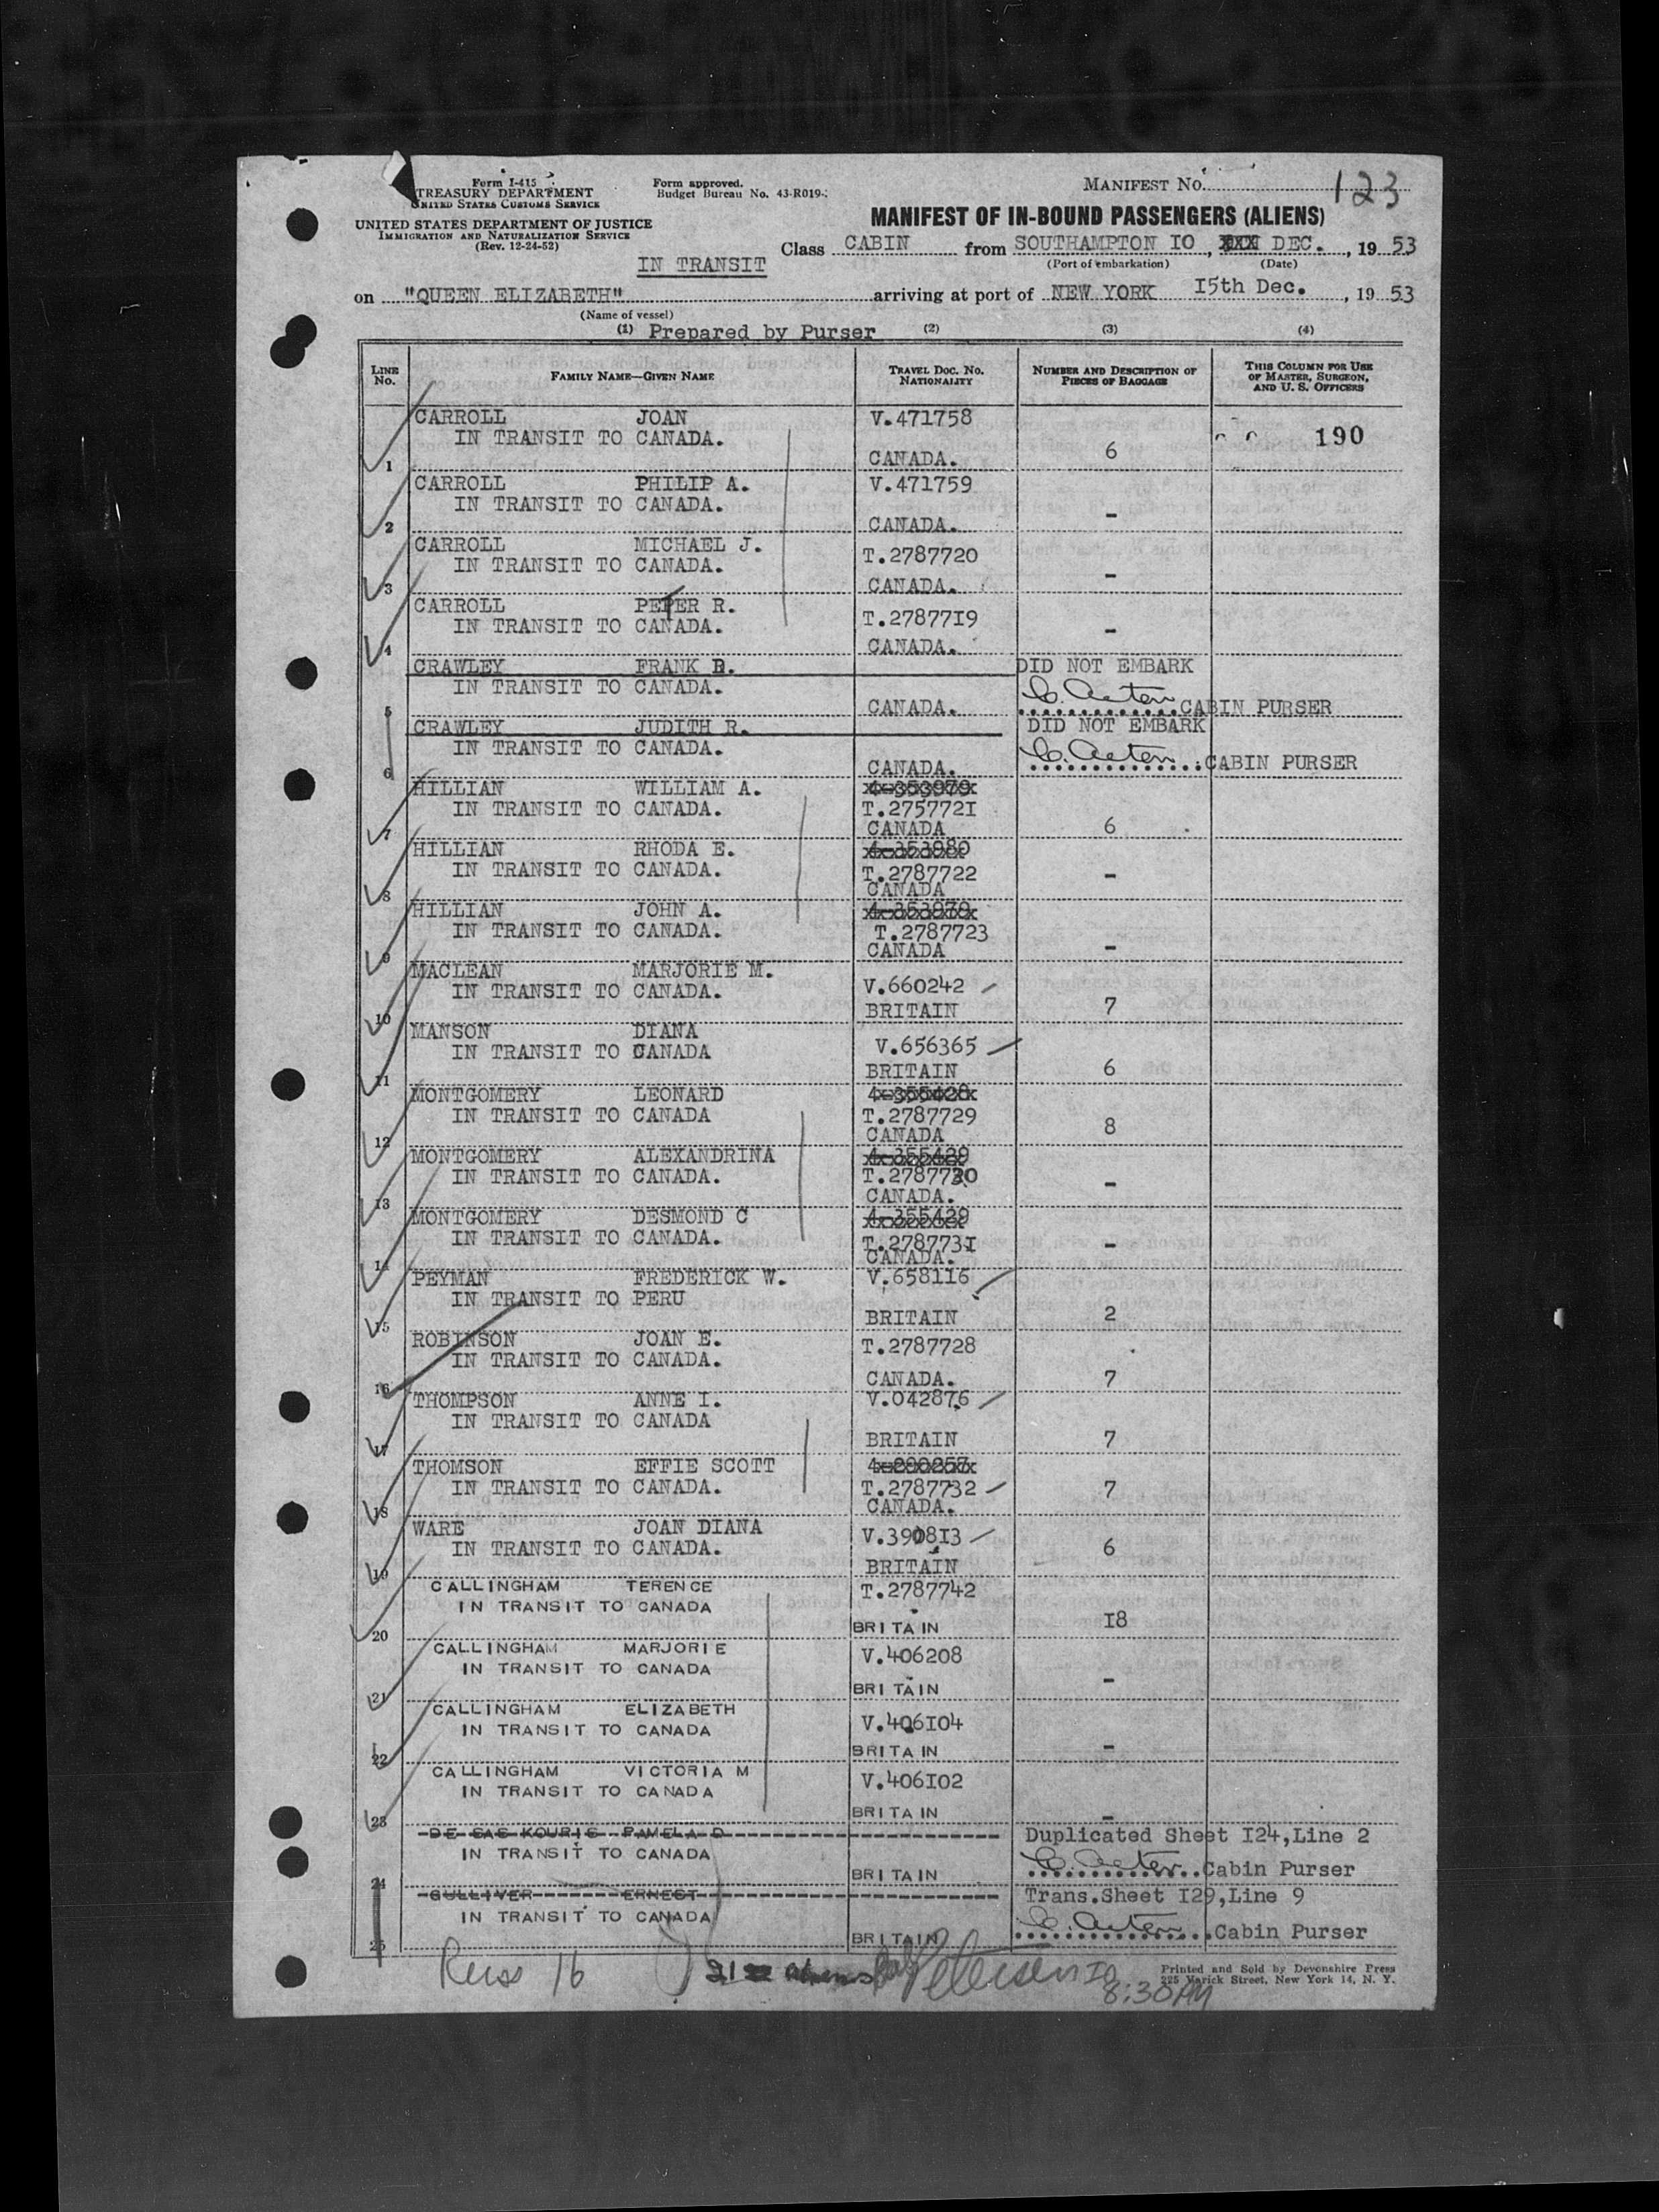 Form I-415
TREASURY DEPARTMENT
UNITED STATES CUSTOMS SERVICE
UNITED STATES DEPARTMENT OF JUSTICE
IMMIGRATION AND NATURALIZATION SERVICE
(Rev. 12-24-52)
Form approved.
Budget Bureau No. 43-R019-
MANIFEST No. 123
MANIFEST OF IN-BOUND PASSENGERS (ALIENS)
IN TRANSIT
Class CABIN from SOUTHAMPTON IO, DEC., 19 53
(Port of embarkation) (Date)
on "QUEEN ELIZABETH" arriving at port of NEW YORK I5th Dec., 19 53
(Name of vessel)
(1) Prepared by Purser (2) (3) (4)
LINE No. FAMILY NAME—GIVEN NAME TRAVEL DOC. No. NATIONALITY NUMBER AND DESCRIPTION OF PIECES OF BAGGAGE THIS COLUMN FOR USE OF MASTER, SURGEON, AND U. S. OFFICERS
CARROLL JOAN V.471758
IN TRANSIT TO CANADA. 190
1 CANADA. 6
CARROLL PHILIP A. V.471759
IN TRANSIT TO CANADA.
2 CANADA. -
CARROLL MICHAEL J. T.2787720
IN TRANSIT TO CANADA.
3 CANADA. -
CARROLL PETER R. T.27877I9
IN TRANSIT TO CANADA.
4 CANADA. -
CRAWLEY FRANK R. DID NOT EMBARK
IN TRANSIT TO CANADA.
5 CANADA. CABIN PURSER
CRAWLEY JUDITH R. DID NOT EMBARK
IN TRANSIT TO CANADA.
6 CANADA. CABIN PURSER
HILLIAN WILLIAM A. 4-353979
IN TRANSIT TO CANADA. T.275772I
7 CANADA 6
HILLIAN RHODA E. 4-353980
IN TRANSIT TO CANADA. T.2787722
8 CANADA -
HILLIAN JOHN A. 4-353979
IN TRANSIT TO CANADA. T.2787723
9 CANADA -
MACLEAN MARJORIE M.
IN TRANSIT TO CANADA. V.660242
10 BRITAIN 7
MANSON DIANA
IN TRANSIT TO CANADA V.656365
11 BRITAIN 6
MONTGOMERY LEONARD 4-355428
IN TRANSIT TO CANADA T.2787729
12 CANADA 8
MONTGOMERY ALEXANDRINA 4-355429
IN TRANSIT TO CANADA. T.2787730
13 CANADA. -
MONTGOMERY DESMOND C 4-355429
IN TRANSIT TO CANADA. T.278773I
14 CANADA. -
PEYMAN FREDERICK W. V.658II6
IN TRANSIT TO PERU
15 BRITAIN 2
ROBINSON JOAN E. T.2787728
IN TRANSIT TO CANADA.
16 CANADA. 7
THOMPSON ANNE I. V.042876
IN TRANSIT TO CANADA
17 BRITAIN 7
THOMSON EFFIE SCOTT 4-290257
IN TRANSIT TO CANADA. T.2787732 7
18 CANADA.
WARE JOAN DIANA V.3908I3
IN TRANSIT TO CANADA. 6
19 BRITAIN
CALLINGHAM TERENCE T.2787742
IN TRANSIT TO CANADA
20 BRITAIN I8
CALLINGHAM MARJORIE V.406208
IN TRANSIT TO CANADA
21 BRITAIN -
CALLINGHAM ELIZABETH V.406I04
IN TRANSIT TO CANADA
22 BRITAIN -
CALLINGHAM VICTORIA M V.406I02
IN TRANSIT TO CANADA
23 BRITAIN -
DE SAS KOURIS PAMELA D Duplicated Sheet I24,Line 2
IN TRANSIT TO CANADA
24 BRITAIN Cabin Purser
GULLIVER ERNEST Trans.Sheet I29,Line 9
IN TRANSIT TO CANADA
25 BRITAIN Cabin Purser
16 21 aliens Petersen
8:30 PM
Printed and Sold by Devonshire Press
225 Varick Street, New York 14, N. Y.